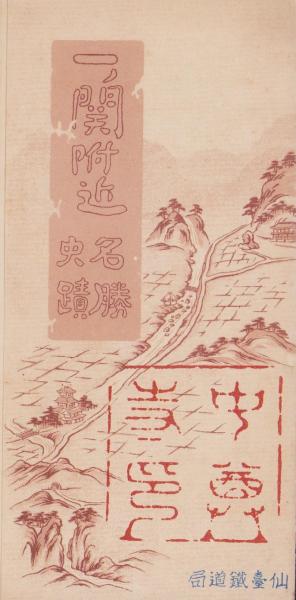 一ノ関附近
名勝
史蹟
中尊
寺印
仙臺鐵道局